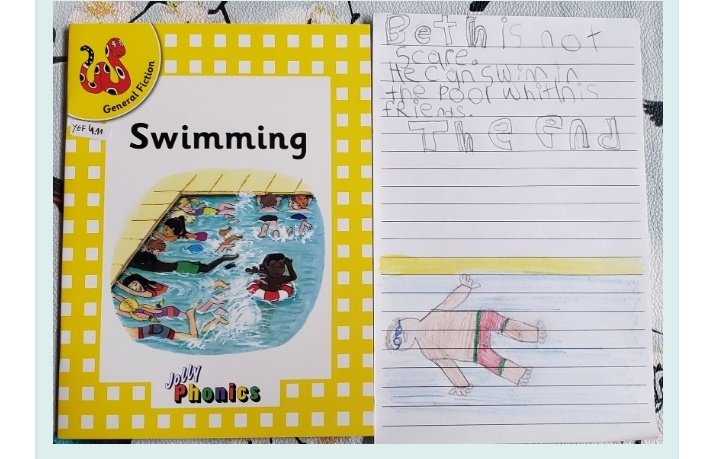 General Fiction
YEF 4.11
Swimming
Jolly
Phonics
Beth is not
scare.
He can swim in
the poor whith is
friends.
The end